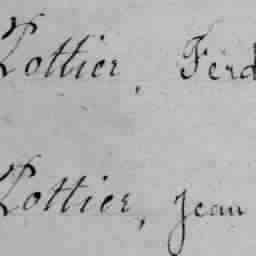 Lottier, Ferd
Lottier, Jean